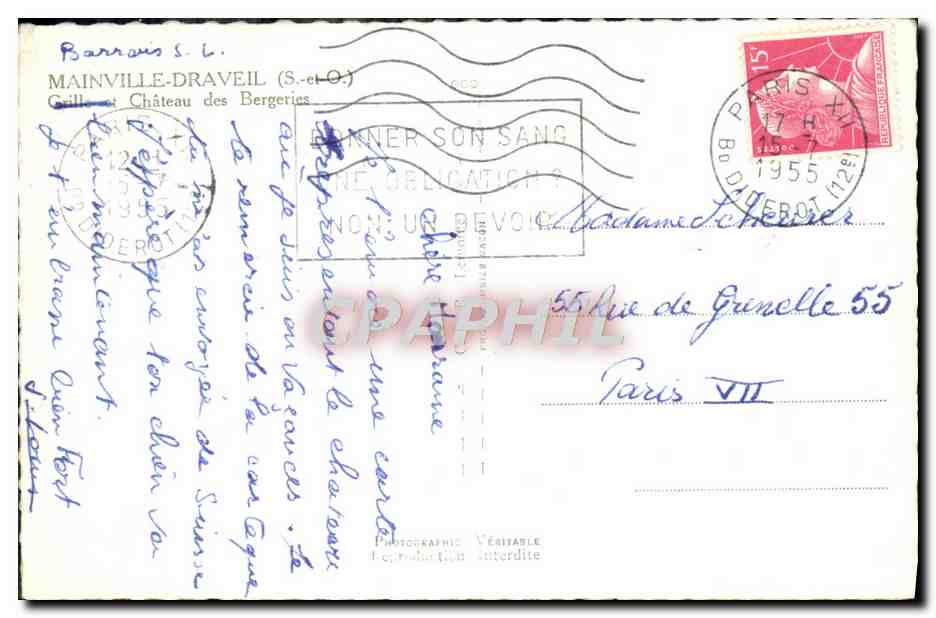 Barrois S. L.
MAINVILLE-DRAVEIL (S.-et-O.)
Grille et Château des Bergeries
DONNER SON SANG
UNE OBLIGATION ?
NON UN DEVOIR
PARIS XII
17 H
1955
BD DIDEROT (12e)
15F
REPUBLIQUE FRANÇAISE
Madame Scheurer
55 Rue de Grenelle 55
Paris VII
chère Marraine
Je t'envoie une carte
représentant le chateau
ou je suis en Vacances. Je
te remercie de la carte que
tu m'as envoyée de Suisse
J'espère que ton chien va
bien maintenant.
Je t'embrasse bien Fort
PARIS XII
1955
BD DIDEROT (12e)
CPAPHIL
PHOTOGRAPHIE VÉRITABLE
Reproduction Interdite